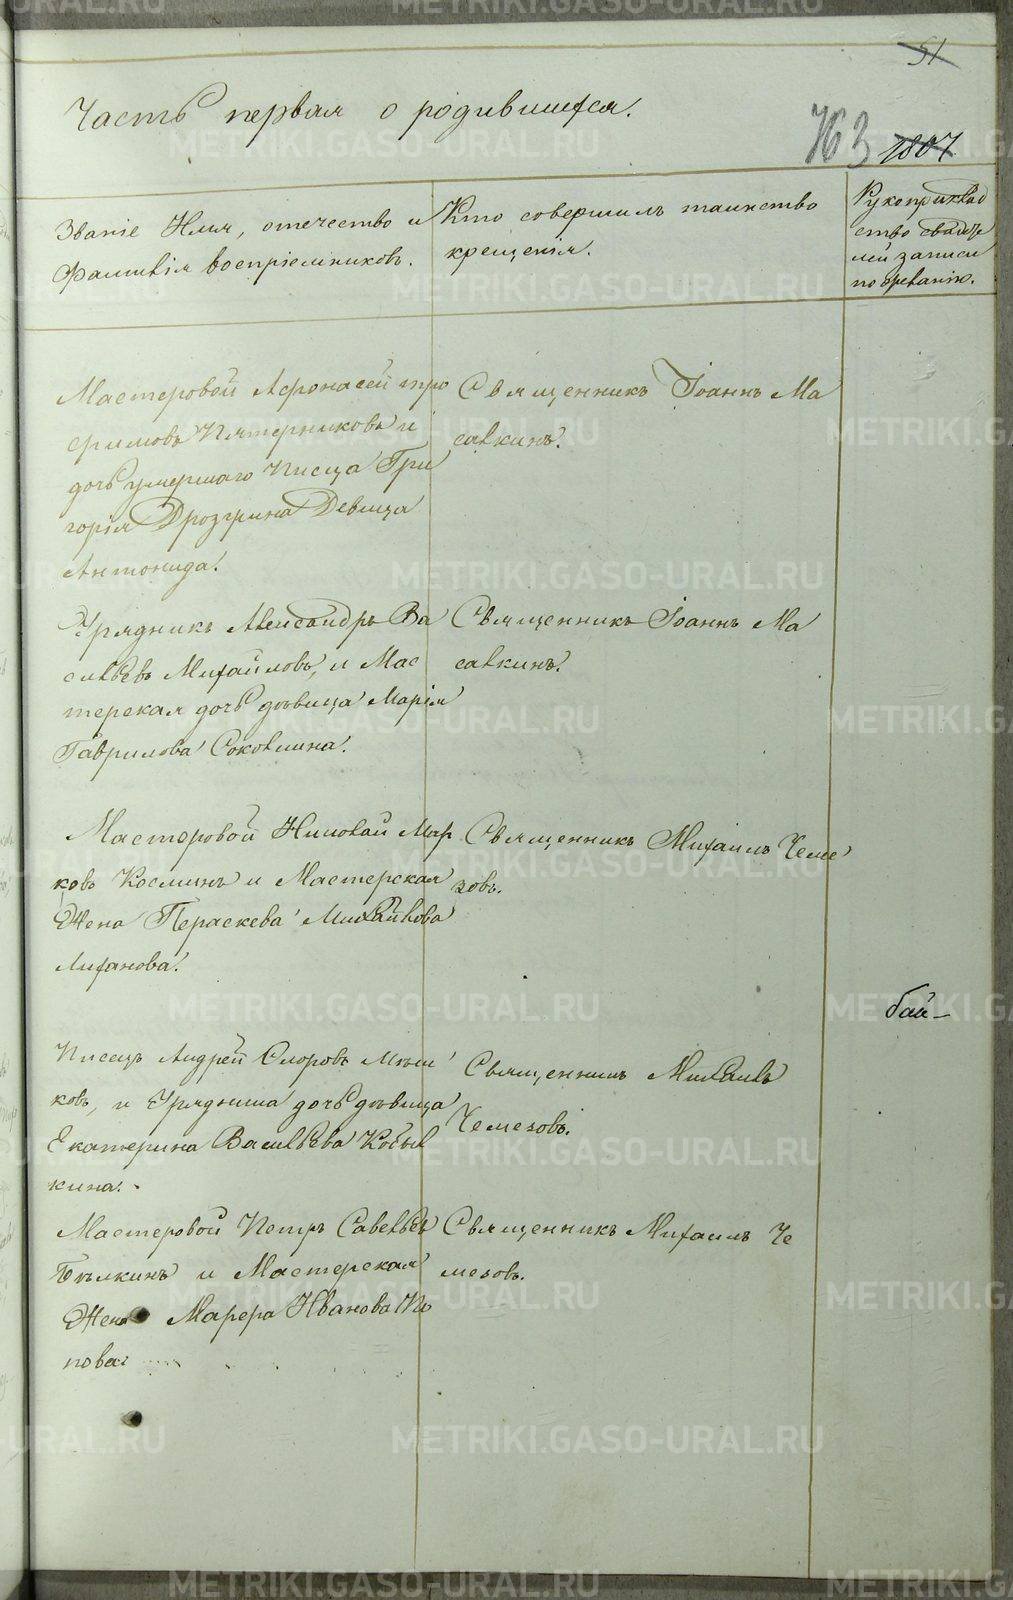 51
Часть первая о родившихся.
763 1807
Званіе Имя, отечество и
фамилія воспріемниковъ.
Кто совершилъ таинство
крещенія.
Рукоприклад
ство свидѣте
лей записи
по желанію.
Мастеровой Афонасей тро
фимовъ Пятерниковъ и
дочь умершаго Писца Гри
горія Дрозгина Девица
Антонида.
Священникъ Іоаннъ Ма
салкинъ.
Урядникъ Александръ Ва
сильевъ Михайловъ, и Мас
терская дочь дѣвица Марія
Гаврилова Соковнина.
Священникъ Іоаннъ Ма
салкинъ.
Мастеровой Николай Мар
ковъ Косминъ и Мастерская
Жена Параскева Михайлова
Лиханова.
Священникъ Михаилъ Чеме
зовъ.
Писецъ Андрей Ѳедоровъ
ковъ, и Урядника дочь дѣвица
Екатерина Васильева Кобыл
кина.
Священникъ Михаилъ
Чемезовъ.
бай-
Мастеровой Петръ Савельевъ
Пѣлкинъ и Мастерская
Жена Марфа Иванова По
пова.
Священникъ Михаилъ Че
мезовъ.
METRIKI.GASO-URAL.RU